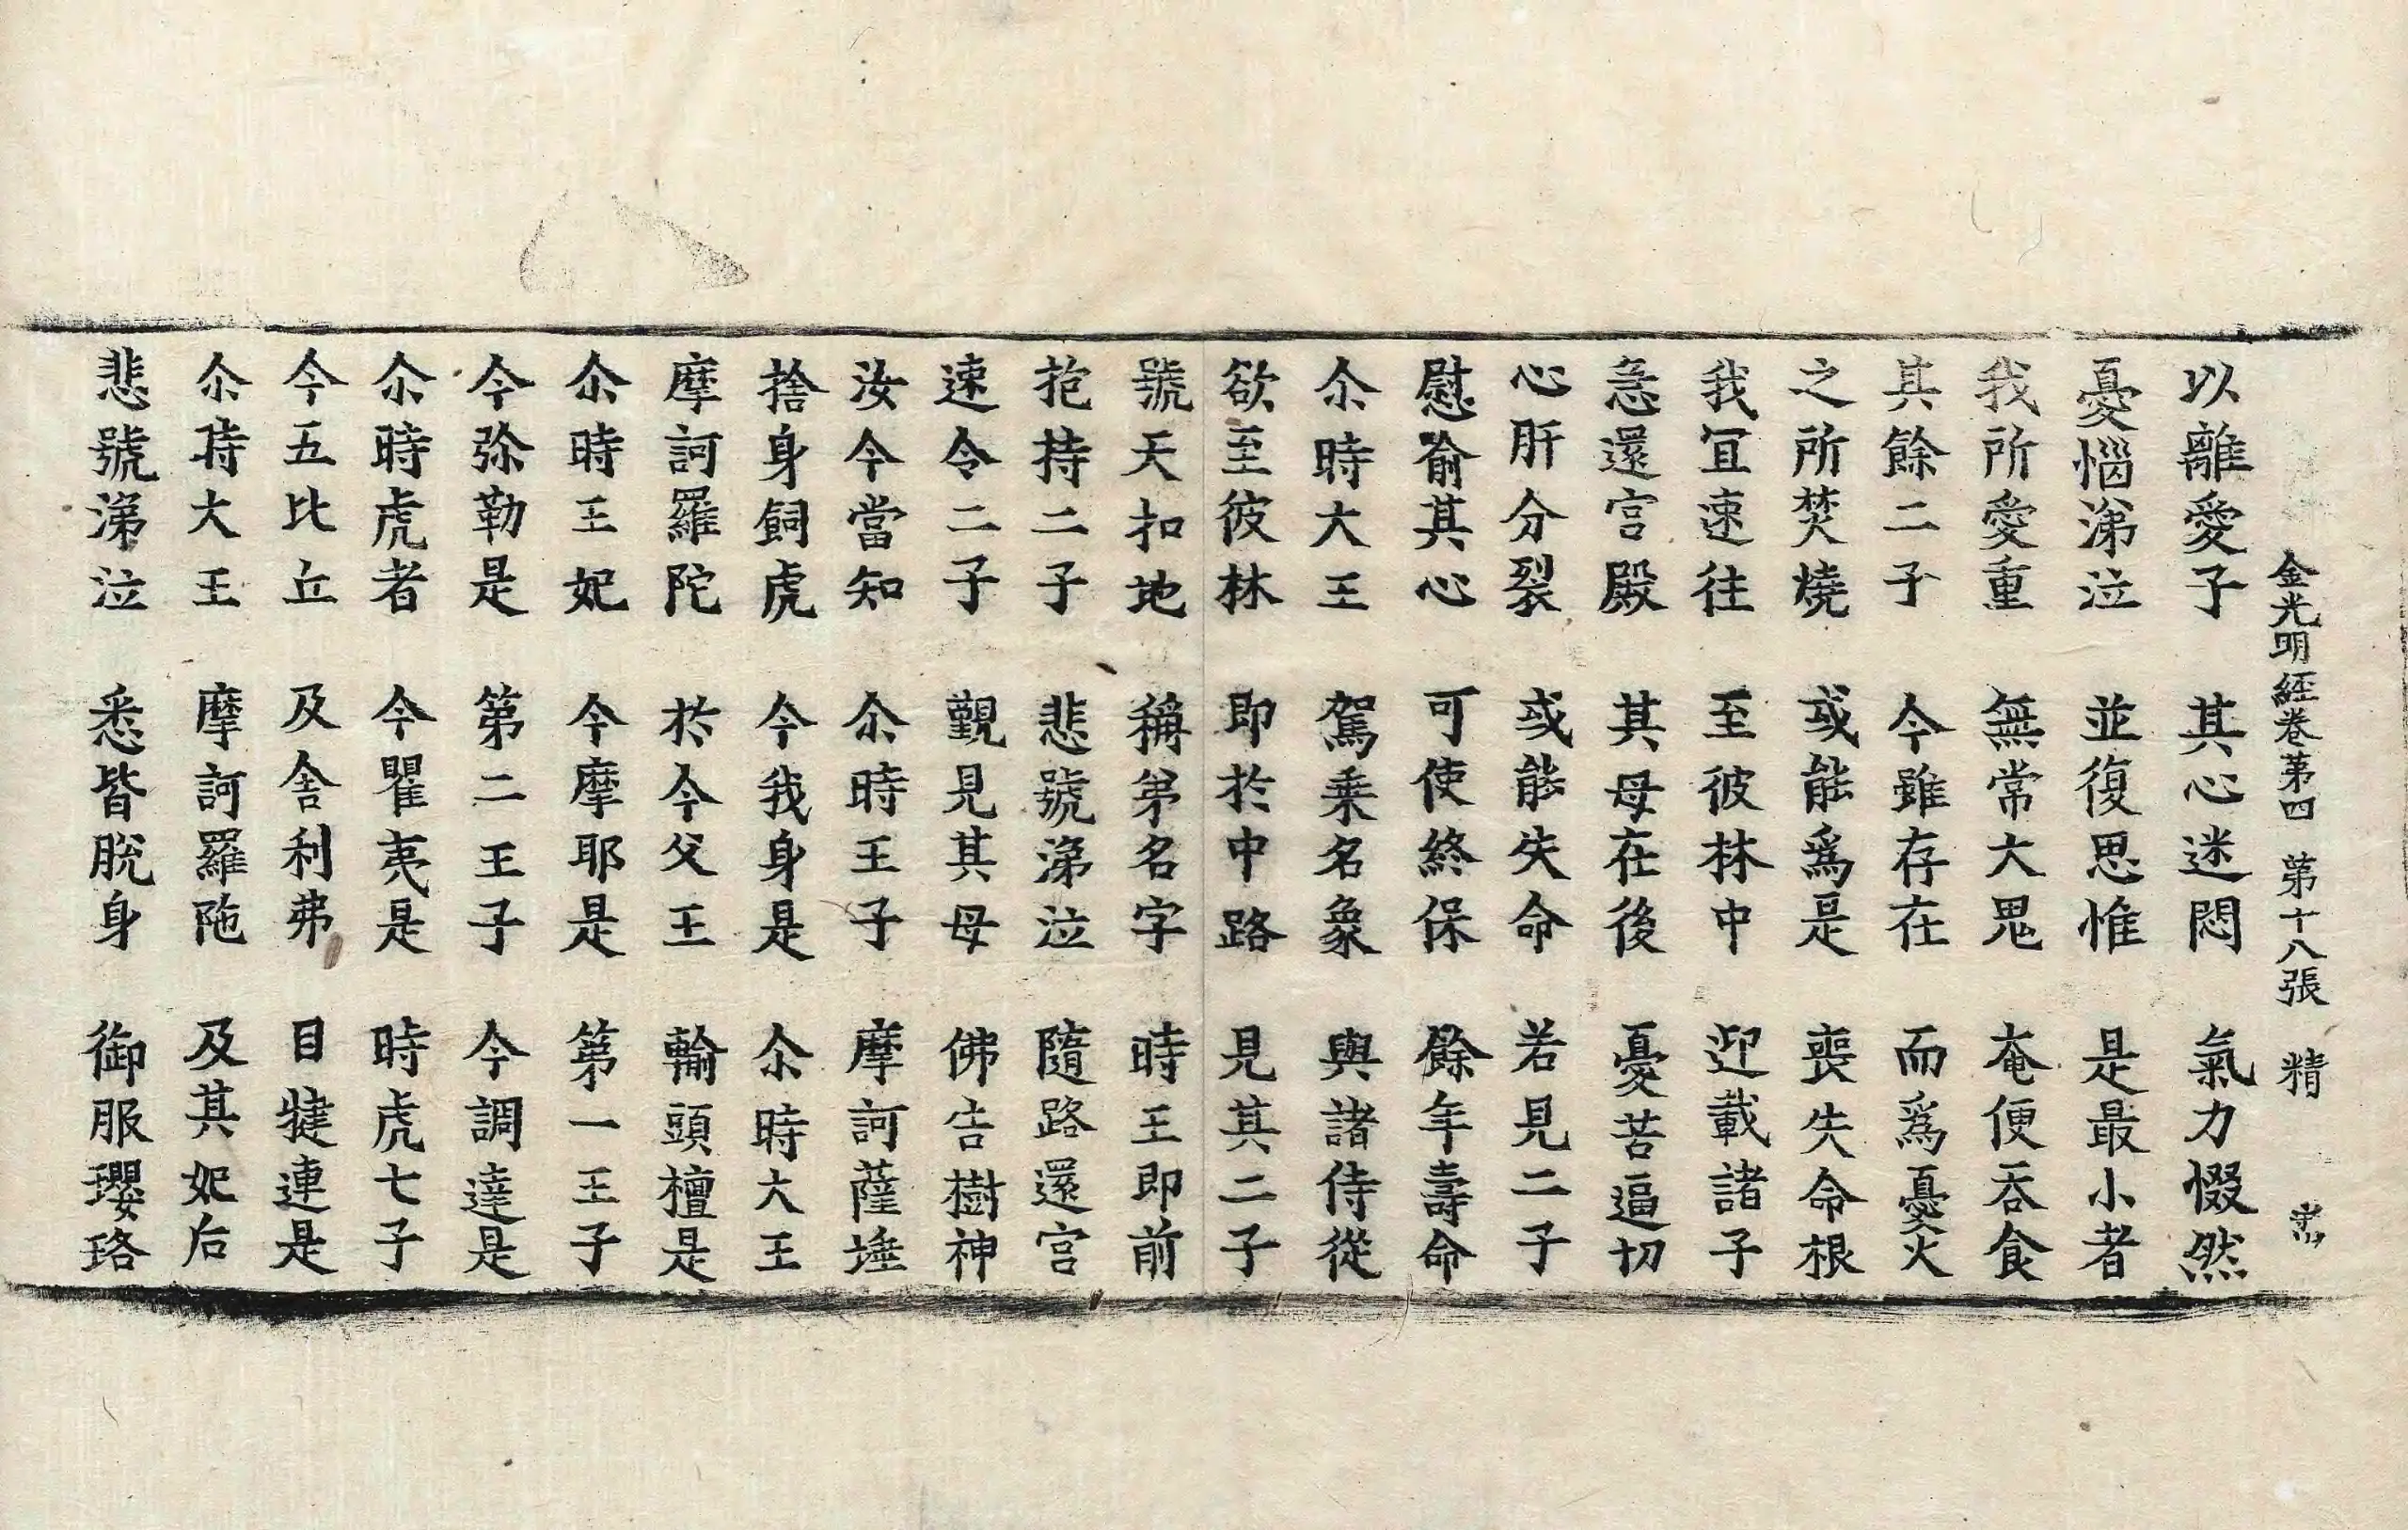 金光明經卷第四 第十八張 精
以離愛子 其心迷悶 氣力惙然
憂惱涕泣 並復思惟 是最小者
我所愛重 無常大鬼 奄便吞食
其餘二子 今雖存在 而爲憂火
之所焚燒 或能爲是 喪失命根
我冝速往 至彼林中 迎載諸子
急還宮殿 其母在後 憂苦逼切
心肝分裂 或能失命 若見二子
慰喻其心 可使終保 餘年壽命
尒時大王 駕乘名象 與諸侍從
欲至彼林 即於中路 見其二子
號天扣地 稱弟名字 時王即前
抱持二子 悲號涕泣 隨路還宮
速令二子 覲見其母 佛告樹神
汝今當知 尒時王子 摩訶薩埵
捨身飼虎 今我身是 尒時大王
摩訶羅陀 於今父王 輸頭檀是
尒時王妃 今摩耶是 第一王子
今弥勒是 第二王子 今調達是
尒時虎者 今瞿夷是 時虎七子
今五比丘 及舍利弗 目犍連是
尒時大王 摩訶羅陁 及其妃后
悲號涕泣 悉皆脫身 御服瓔珞